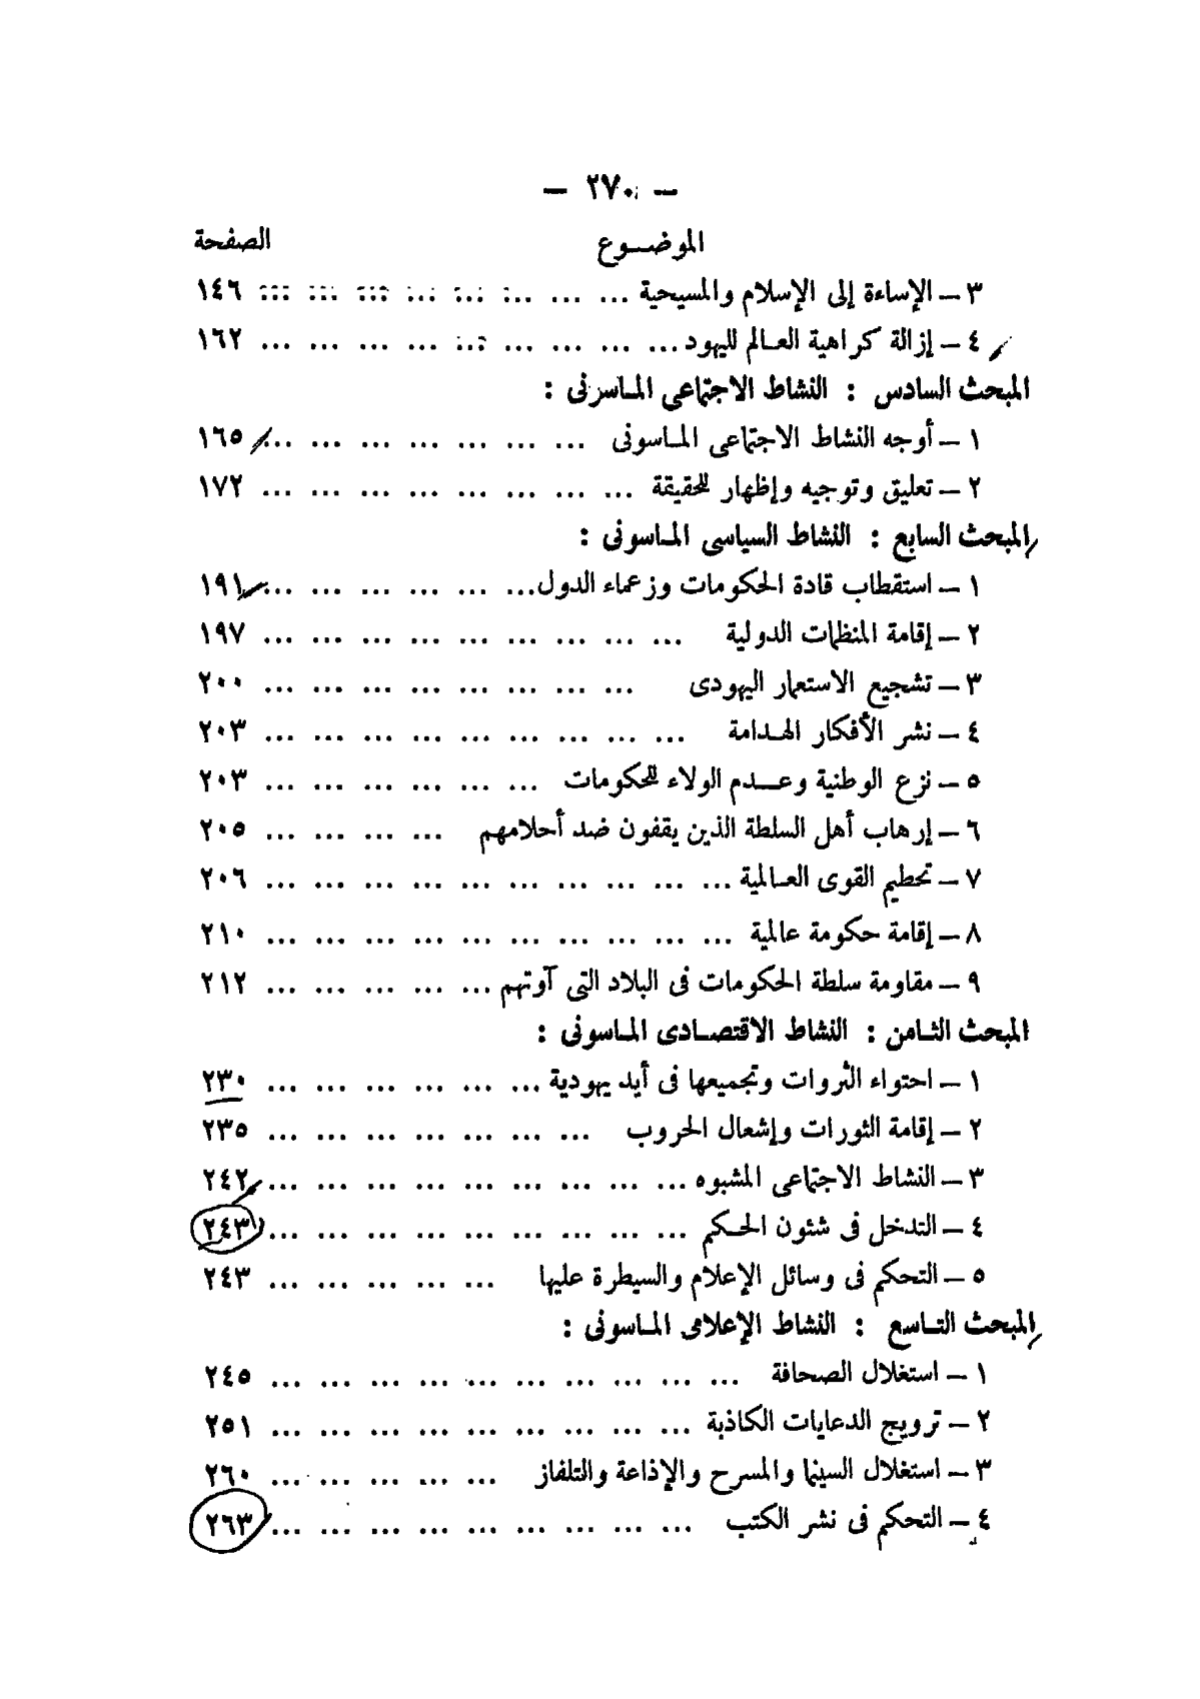 — ٢٧٠ —
الموضــوع الصفحة
٣ — الإساءة إلى الإسلام والمسيحية ... ... ... ... ... ... ... ... ١٤٦
٤ — إزالة كراهية العـالم لليهود ... ... ... ... ... ... ... ... ... ١٦٢
المبحث السادس : النشاط الاجتماعى المـاسونى :
١ — أوجه النشاط الاجتماعى المـاسونى ... ... ... ... ... ... ... ١٦٥
٢ — تعليق وتوجيه وإظهار للحقيقة ... ... ... ... ... ... ... ... ١٧٢
المبحث السابع : النشاط السياسى المـاسونى :
١ — استقطاب قادة الحكومات وزعماء الدول ... ... ... ... ... ... ١٩١
٢ — إقامة المنظمات الدولية ... ... ... ... ... ... ... ... ... ١٩٧
٣ — تشجيع الاستعمار اليهودى ... ... ... ... ... ... ... ... ٢٠٠
٤ — نشر الأفكار الهـدامة ... ... ... ... ... ... ... ... ... ٢٠٣
٥ — نزع الوطنية وعــدم الولاء للحكومات ... ... ... ... ... ... ٢٠٣
٦ — إرهاب أهل السلطة الذين يقفون ضد أحلامهم ... ... ... ... ٢٠٥
٧ — تحطيم القوى العـالمية ... ... ... ... ... ... ... ... ... ... ٢٠٦
٨ — إقامة حكومة عالمية ... ... ... ... ... ... ... ... ... ... ٢١٠
٩ — مقاومة سلطة الحكومات فى البلاد التى آوتهم ... ... ... ... ... ٢١٢
المبحث الثـامن : النشاط الاقتصـادى المـاسونى :
١ — احتواء الثروات وتجميعها فى أيد يهودية ... ... ... ... ... ... ٢٣٠
٢ — إقامة الثورات وإشعال الحروب ... ... ... ... ... ... ... ٢٣٥
٣ — النشاط الاجتماعى المشبوه ... ... ... ... ... ... ... ... ... ٢٤٢
٤ — التدخل فى شئون الحـكم ... ... ... ... ... ... ... ... ... ٢٤٣
٥ — التحكم فى وسائل الإعلام والسيطرة عليها ... ... ... ... ... ٢٤٣
المبحث التـاسع : النشاط الإعلامى المـاسونى :
١ — استغلال الصحافة ... ... ... ... ... ... ... ... ... ... ٢٤٥
٢ — ترويج الدعايات الكاذبة ... ... ... ... ... ... ... ... ... ٢٥١
٣ — استغلال السينما والمسرح والإذاعة والتلفاز ... ... ... ... ... ٢٦٠
٤ — التحكم فى نشر الكتب ... ... ... ... ... ... ... ... ... ٢٦٣